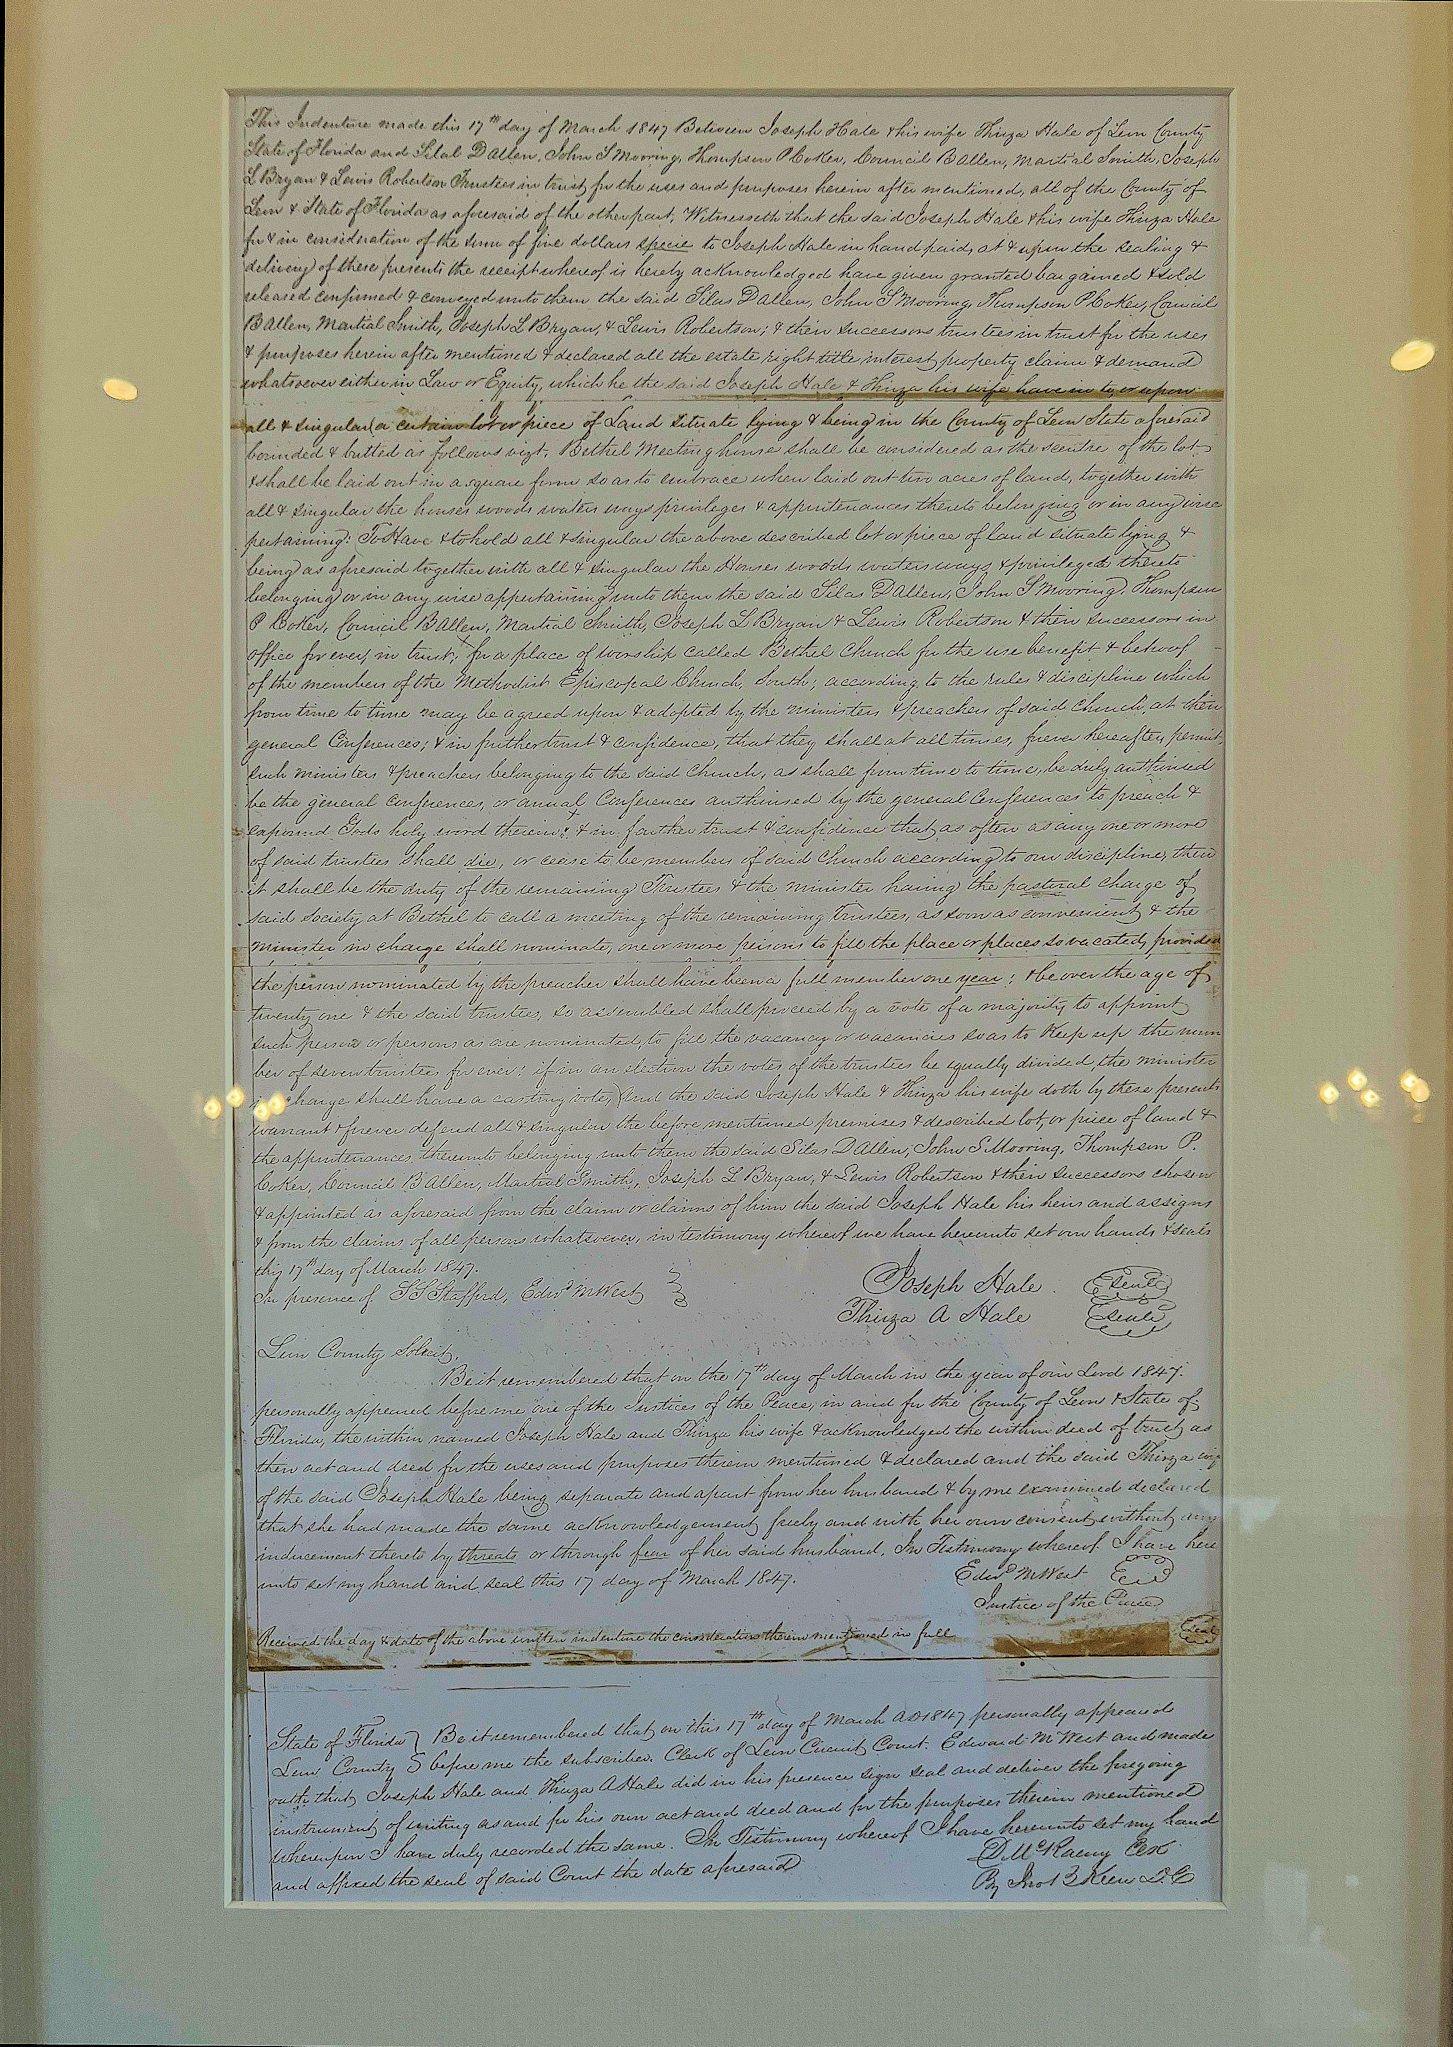 This Indenture made this 17th day of March 1847 Between Joseph Hale & his wife Thirza Hale of Leon County
State of Florida and Silas D Allen, John S Mooring, Thompson P Coker, Council B Allen, Martial Smith, Joseph
L Bryan & Lewis Robertson Trustees in trust for the uses and purposes herein after mentioned, all of the County of
Leon & State of Florida as aforesaid of the other part, Witnesseth that the said Joseph Hale & his wife Thirza Hale
for & in consideration of the sum of five dollars specie to Joseph Hale in hand paid, at & upon the sealing &
delivery of these presents the receipt whereof is hereby acknowledged have given granted bargained & sold
released confirmed & conveyed unto them the said Silas D Allen, John S Mooring, Thompson P Coker, Council
B Allen, Martial Smith, Joseph L Bryan, & Lewis Robertson; & their successors trustees in trust for the uses
& purposes herein after mentioned & declared all the estate right title interest property claim & demand
whatsoever either in Law or Equity, which he the said Joseph Hale & Thirza his wife have in to, or upon
all & singular (a certain lot or piece of Land situate lying & being) in the County of Leon State aforesaid
bounded & butted as follows vizt, Bethel Meeting house shall be considered as the scentre of the lot
& shall be laid out in a square form so as to embrace when laid out two acres of land, together with
all & singular the houses woods waters ways privileges & appurtenances thereto belonging or in any wise
pertaining: To Have & to hold all & singular the above described lot or piece of land situate lying &
being as aforesaid together with all & singular the Houses woods waters ways & privileges thereto
belonging or in any wise appertaining unto them the said Silas D Allen, John S Mooring, Thompson
P Coker, Council B Allen, Martial Smith, Joseph L Bryan & Lewis Robertson & their successors in
office for ever, in trust; for a place of worship called Bethel Church for the use benefit & behoof
of the members of the Methodist Episcopal Church, South; according to the rules & discipline which
from time to time may be agreed upon & adopted by the ministers & preachers of said Church, at their
general Conferences; & in further trust & confidence, that they shall at all times, forever hereafter, permit,
such ministers & preachers belonging to the said Church, as shall from time to time, be duly authorised
be the general conferences, or annual Conferences authorised by the general Conferences to preach &
expound Gods holy word therein; & in further trust & confidence that, as often as any one or more
of said trustees shall die, or cease to be members of said Church according to our discipline, then
it shall be the duty of the remaining Trustees & the minister having the pastoral charge of
said society at Bethel to call a meeting of the remaining Trustees, as soon as convenient & the
minister in charge shall nominate, one or more persons to fill the place or places so vacated, provided
the person nominated by the preacher shall have been a full member one year; & be over the age of
twenty one & the said trustees, so assembled shall proceed by a vote of a majority to appoint
such person or persons as are nominated, to fill the vacancy or vacancies so as to keep up the num
ber of seven trustees for ever; if in an election the votes of the trustees be equally divided, the minister
in charge shall have a casting vote, And the said Joseph Hale & Thirza his wife doth by these presents
warrant & forever defend all & singular the before mentioned premises & described lot, or piece of land &
the appurtenances thereunto belonging unto them the said Silas D Allen, John S Mooring, Thompson P.
Coker, Council B Allen, Martial Smith, Joseph L Bryan, & Lewis Robertson & their successors chosen
& appointed as aforesaid from the claim or claims of him the said Joseph Hale his heirs and assigns
& from the claims of all persons whatsoever, in testimony whereof we have hereunto set our hands & seals
this 17th day of March 1847.
In presence of S S Stafford, Edwd M West
Joseph Hale Seal
Thirza A Hale Seal
Leon County
Be it remembered that on the 17th day of March in the year of our Lord 1847.
personally appeared before me one of the Justices of the Peace, in and for the County of Leon & State of
Florida, the within named Joseph Hale and Thirza his wife & acknowledged the within deed of trust, as
their act and deed for the uses and purposes therein mentioned & declared and the said Thirza wife
of the said Joseph Hale being separate and apart from her husband & by me examined declared
that she had made the same acknowledgement freely and with her own consent without any
inducement thereto by threats or through fear of her said husband. In Testimony whereof I have here
unto set my hand and seal this 17 day of March 1847.
Edwd M West
Justice of the Peace
Received the day & date of the above written indenture the consideration therein mentioned in full
Seal
State of Florida Be it remembered that on this 17th day of March AD 1847 personally appeared
Leon County before me the subscriber. Clerk of Leon Circuit Court. Edward M West and made
oath that Joseph Hale and Thirza A Hale did in his presence sign seal and deliver the foregoing
instrument of writing as and for his own act and deed and for the purposes therein mentioned
whereupon I have duly recorded the same. In Testimony whereof I have hereunto set my hand
and affixed the seal of said Court the date aforesaid
D. McRaeny Clk
By Jno B Keen D.C